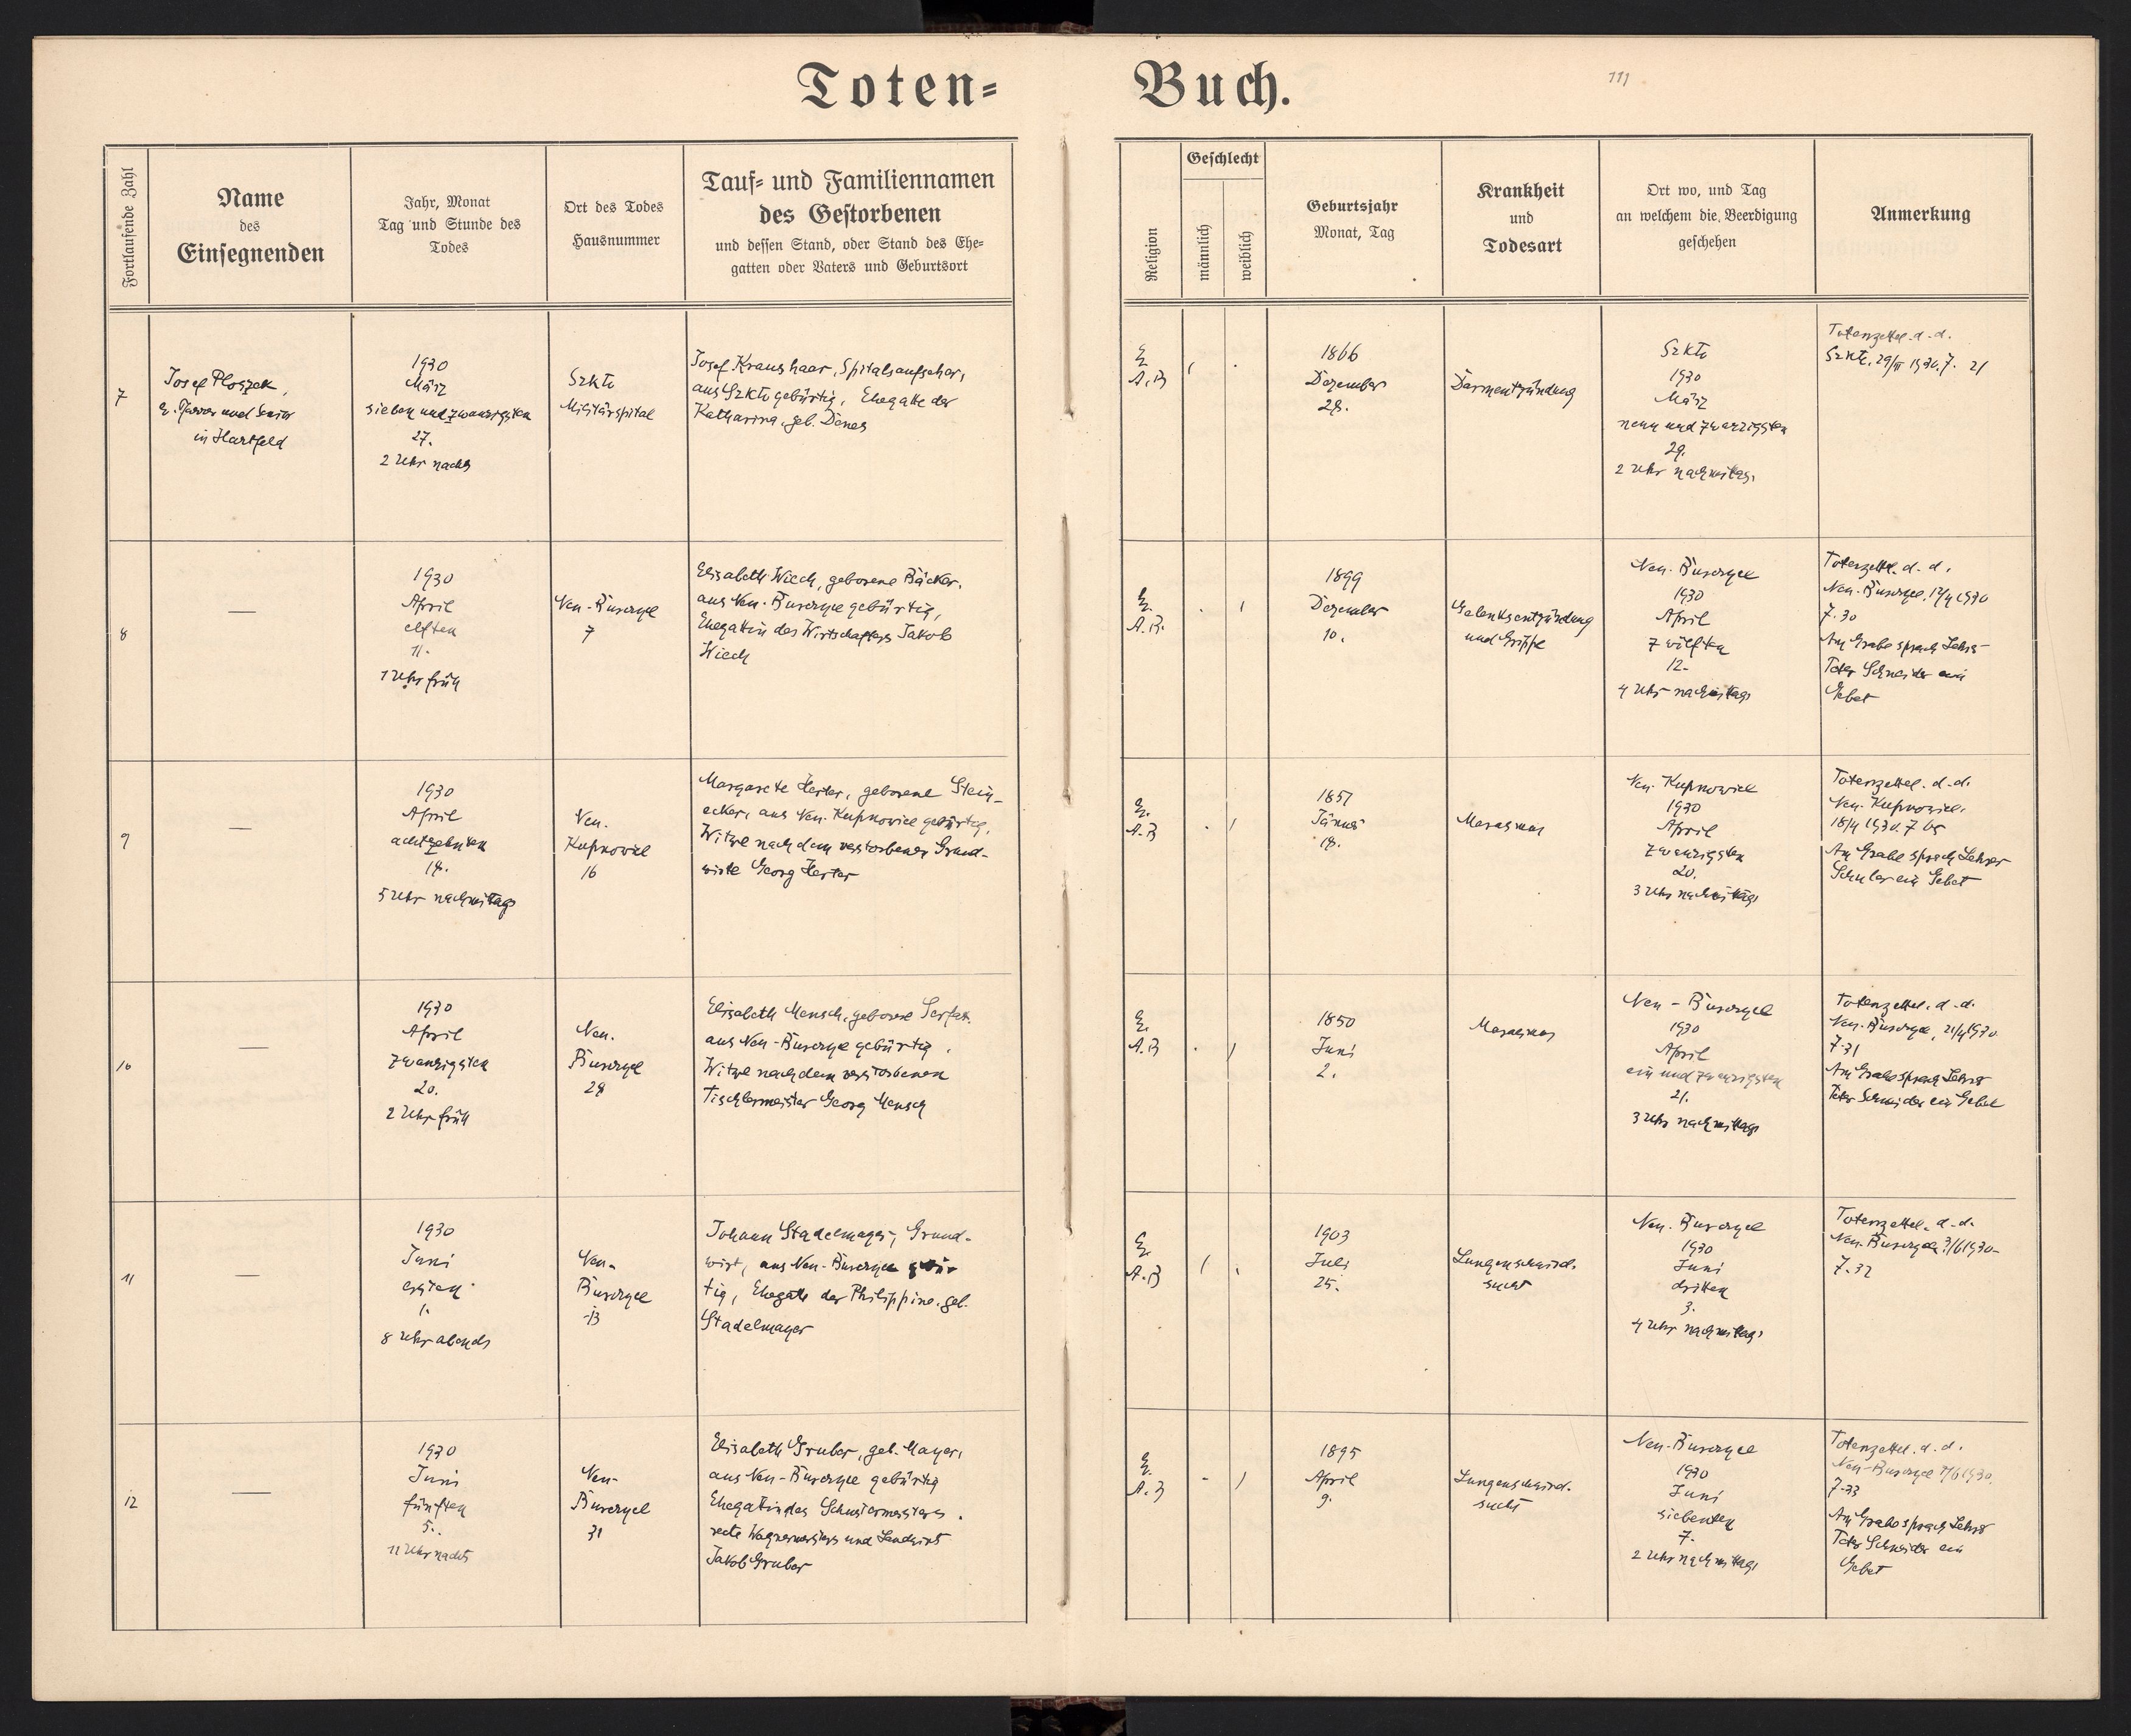 Toten=
Buch.
111
Fortlaufende Zahl
Name
des
Einsegnenden
Jahr, Monat
Tag und Stunde des
Todes
Ort des Todes
Hausnummer
Tauf= und Familiennamen
des Gestorbenen
und dessen Stand, oder Stand des Ehe=
gatten oder Vaters und Geburtsort
Religion
Geschlecht
männlich
weiblich
Geburtsjahr
Monat, Tag
Krankheit
und
Todesart
Ort wo, und Tag
an welchem die Beerdigung
geschehen
Anmerkung
7
Josef Ploszek,
E. Pfarrer und Senior
in Hartfeld
1930
März
sieben und zwanzigsten
27.
2 Uhr nachts
Szkło
Militärspital
Josef Kraushaar, Spitalsaufseher,
aus Szkło gebürtig, Ehegatte der
Katharina, geb. Dénes
E.
A.B
1866
Dezember
28.
Darmentzündung
Szkło
1930
März
neun und zwanzigsten
29.
2 Uhr nachmittags
Totenzettel d. d.
Szkło, 29/III 1930, 7. 21
8
—
1930
April
elften
11.
1 Uhr früh
Neu-Burczyce
7
Elisabeth Wiech, geborene Bäcker,
aus Neu-Burczyce gebürtig,
Ehegattin des Wirtschafters Jakob
Wiech
E.
A.B.
1899
Dezember
10.
Gelenksentzündung
und Grippe
Neu-Burczyce
1930
April
zwölften
12.
4 Uhr nachmittags
Totenzettel d. d.
Neu-Burczyce, 12/4 1930
7. 30
Am Grabe sprach Lehrer
Schneider ein
Gebet
9
—
1930
April
achtzehnten
18.
5 Uhr nachmittags
Neu-
Kupnowice
16
Margarete Herter, geborene Stein-
ecker, aus Neu-Kupnowice gebürtig,
Witwe nach dem verstorbenen Grund-
wirte Georg Herter
E.
A.B
1851
Jänner
18.
Marasmus
Neu-Kupnowice
1930
April
zwanzigsten
20.
3 Uhr nachmittags
Totenzettel d. d.
Neu-Kupnowice,
18/4 1930. 7
Am Grabe sprach Lehrer
Schuler ein Gebet
10
—
1930
April
zwanzigsten
20.
2 Uhr früh
Neu-
Burczyce
28
Elisabeth Mensch, geborene
aus Neu-Burczyce gebürtig,
Witwe nach dem verstorbenen
Tischlermeister Georg Mensch
E.
A.B
1850
Juni
2.
Marasmus
Neu-Burczyce
1930
April
ein und zwanzigsten
21.
3 Uhr nachmittags
Totenzettel d. d.
Neu-Burczyce, 21/4 1930
7. 31
Am Grabe sprach Lehrer
Schneider ein Gebet
11
—
1930
Juni
ersten
1.
8 Uhr abends
Neu-
Burczyce
13
Johann Stadelmayer, Grund-
wirt, aus Neu-Burczyce gebür-
tig, Ehegatte der Philippine, geb.
Stadelmayer
E.
A.B
1903
Juli
25.
Lungenschwind-
sucht
Neu-Burczyce
1930
Juni
dritten
3.
4 Uhr nachmittags
Totenzettel d. d.
Neu-Burczyce 3/6 1930
7. 32
12
—
1930
Juni
fünften
5.
11 Uhr nachts
Neu-
Burczyce
31
Elisabeth Gruber, geb. Mayer,
aus Neu-Burczyce gebürtig
Ehegattin des Schustermeisters,
recte Wagnermeisters und Landwirts
Jakob Gruber
E.
A.B
1895
April
9.
Lungenschwind-
sucht
Neu-Burczyce
1930
Juni
siebenten
7.
2 Uhr nachmittags
Totenzettel d. d.
Neu-Burczyce 7/6 1930.
7. 33
Am Grabe sprach Lehrer
Schneider ein
Gebet